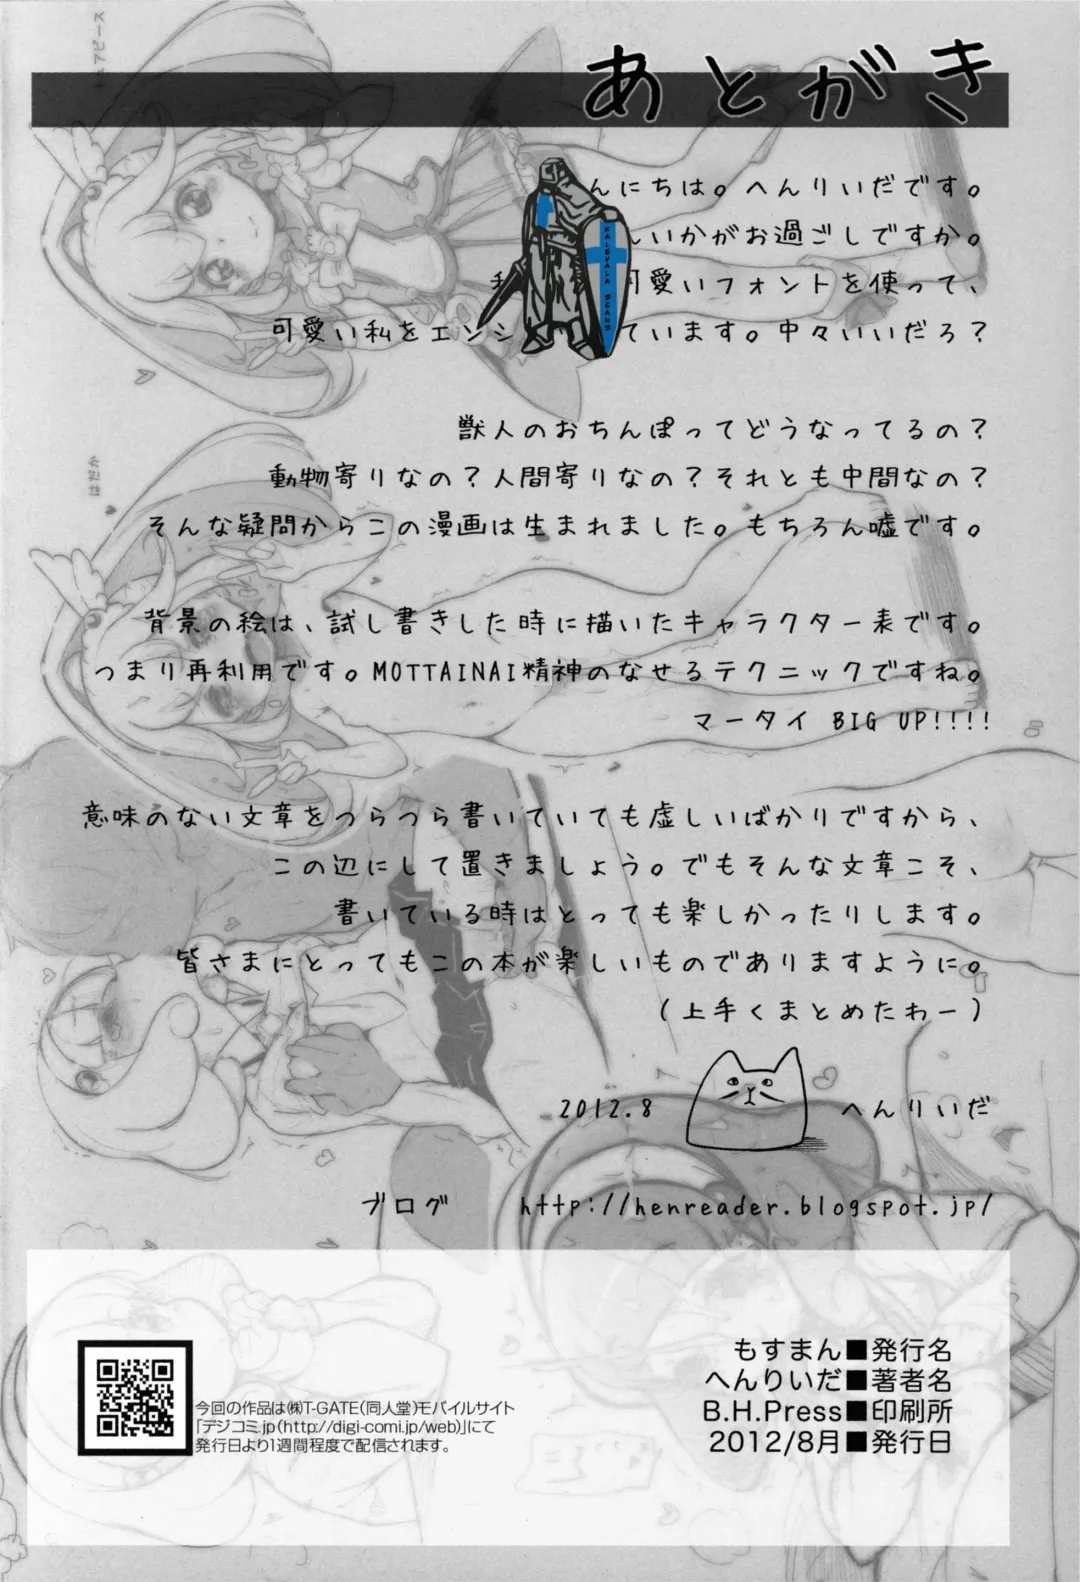 あとがき
んにちは。へんりいだです。
いかがお過ごしですか。
可愛いフォントを使って、
可愛い私をエンシ
ています。中々いいだろ?
獣人のおちんぽってどうなってるの?
動物寄りなの?人間寄りなの?それとも中間なの?
そんな疑問からこの漫画は生まれました。もちろん嘘です。
背景の絵は、試し書きした時に描いたキャラクター表です。
つまり再利用です。MOTTAINAI精神のなせるテクニックですね。
マータイ BIG UP!!!!
意味のない文章をつらつら書いていても虚しいばかりですから、
この辺にして置きましょう。でもそんな文章こそ、
書いている時はとっても楽しかったりします。
皆さまにとってもこの本が楽しいものでありますように。
(上手くまとめたわー)
2012.8 へんりいだ
ブログ http://henreader.blogspot.jp/
もすまん■発行名
へんりいだ■著者名
B.H.Press■印刷所
2012/8月■発行日
今回の作品は㈱T-GATE(同人堂)モバイルサイト
「デジコミ.jp(http://digi-comi.jp/web)」にて
発行日より1週間程度で配信されます。
KALEVALA SCANS